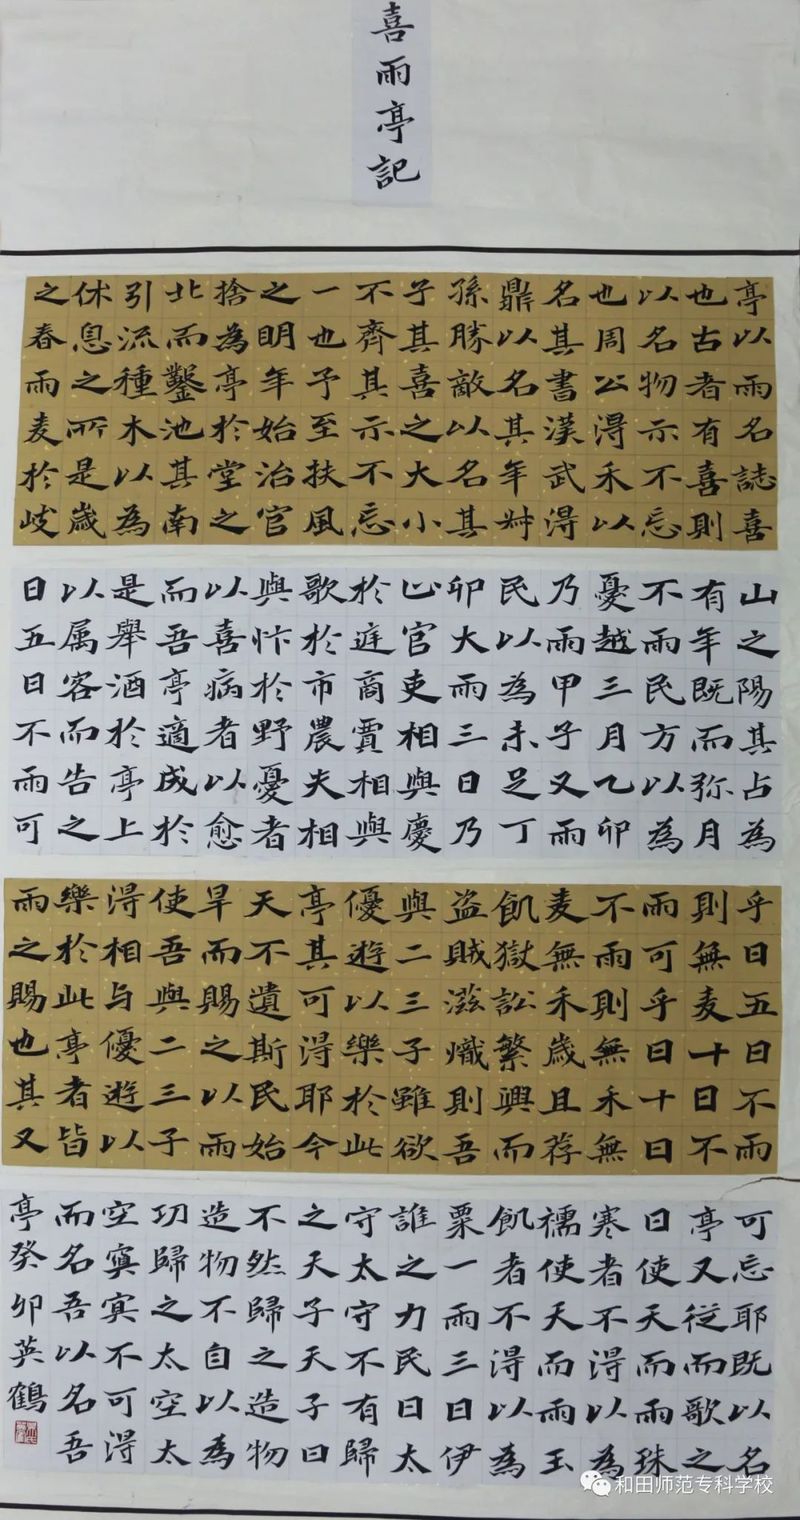 喜雨亭記
亭以雨名誌喜
也古者有喜則
以名物示不忘
也周公得禾以
名其書漢武得
鼎以名其年叔
孫勝敵以名其
子其喜之大小
不齊其示不忘
一也予至扶風
之明年始治官
捨為亭於堂之
北而鑿池其南
引流種木以為
休息之所是歲
之春雨麦於岐
山之陽其占為
有年既而弥月
不雨民方以為
憂越三月乙卯
乃雨甲子又雨
民以為未足丁
卯大雨三日乃
止官吏相與慶
於庭商賈相與
歌於市農夫相
與忭於野憂者
以喜病者以愈
而吾亭適成於
是舉酒於亭上
以属客而告之
曰五日不雨可
乎曰五日不雨
則無麦十日不
雨可乎曰十日
不雨則無禾無
麦無禾歲且荐
飢獄訟繁興而
盗賊滋熾則吾
與二三子雖欲
優遊以樂於此
亭其可得耶今
天不遺斯民始
旱而賜之以雨
使吾與二三子
得相与優遊以
樂於此亭者皆
雨之賜也其又
可忘耶既以名
亭又從而歌之
曰使天而雨珠
寒者不得以為
襦使天而雨玉
飢者不得以為
粟一雨三日伊
誰之力民曰太
守太守不有歸
之天子天子曰
不然歸之造物
造物不自以為
功歸之太空太
空冥冥不可得
而名吾以名吾
亭癸卯英鶴
和田师范专科学校